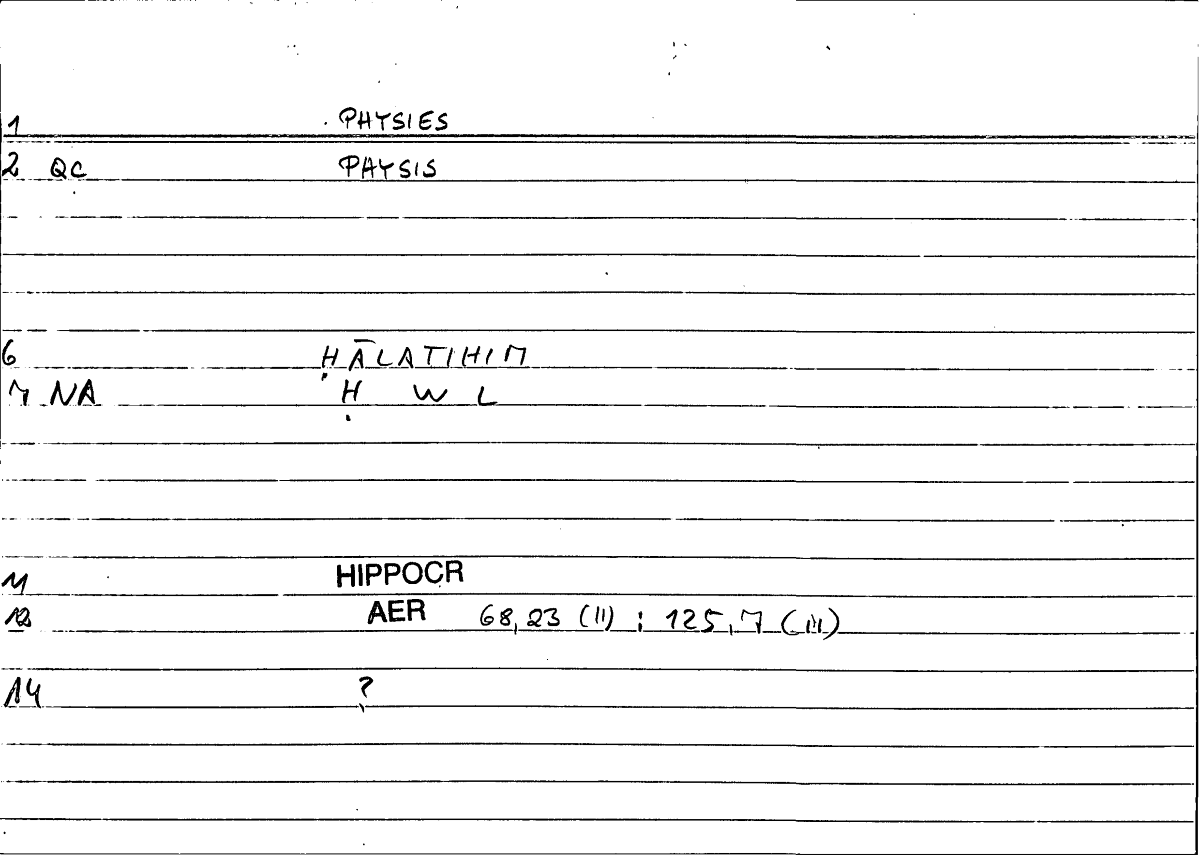 1 PHYSIES
2 QC PHYSIS
6 ḤĀLATIHIM
7 NA Ḥ W L
11 HIPPOCR
12 AER 68,23 (II) ; 125,7 (III)
14 ?